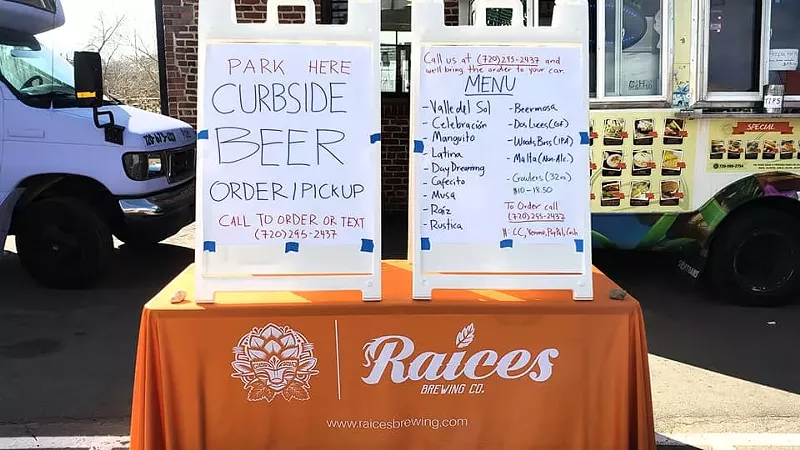 PARK HERE
CURBSIDE
BEER
ORDER/PICKUP
CALL TO ORDER OR TEXT
(720)295-2437
Call us at (720)295-2437 and
we'll bring the order to your car.
MENU
- Valle del Sol
- Celebración
- Manguito
- Latina
- Day Dreaming
- Cafecito
- Musa
- Raiz
- Rustica
- Beermosa
- Dos Luces (GF)
- Malta (Non-Alc.)
- Crowlers (32oz)
$10 - 18.50
To Order call
(720)295-2437
CC, Venmo, PayPal, Cash
SPECIAL
Raíces
BREWING CO.
www.raicesbrewing.com